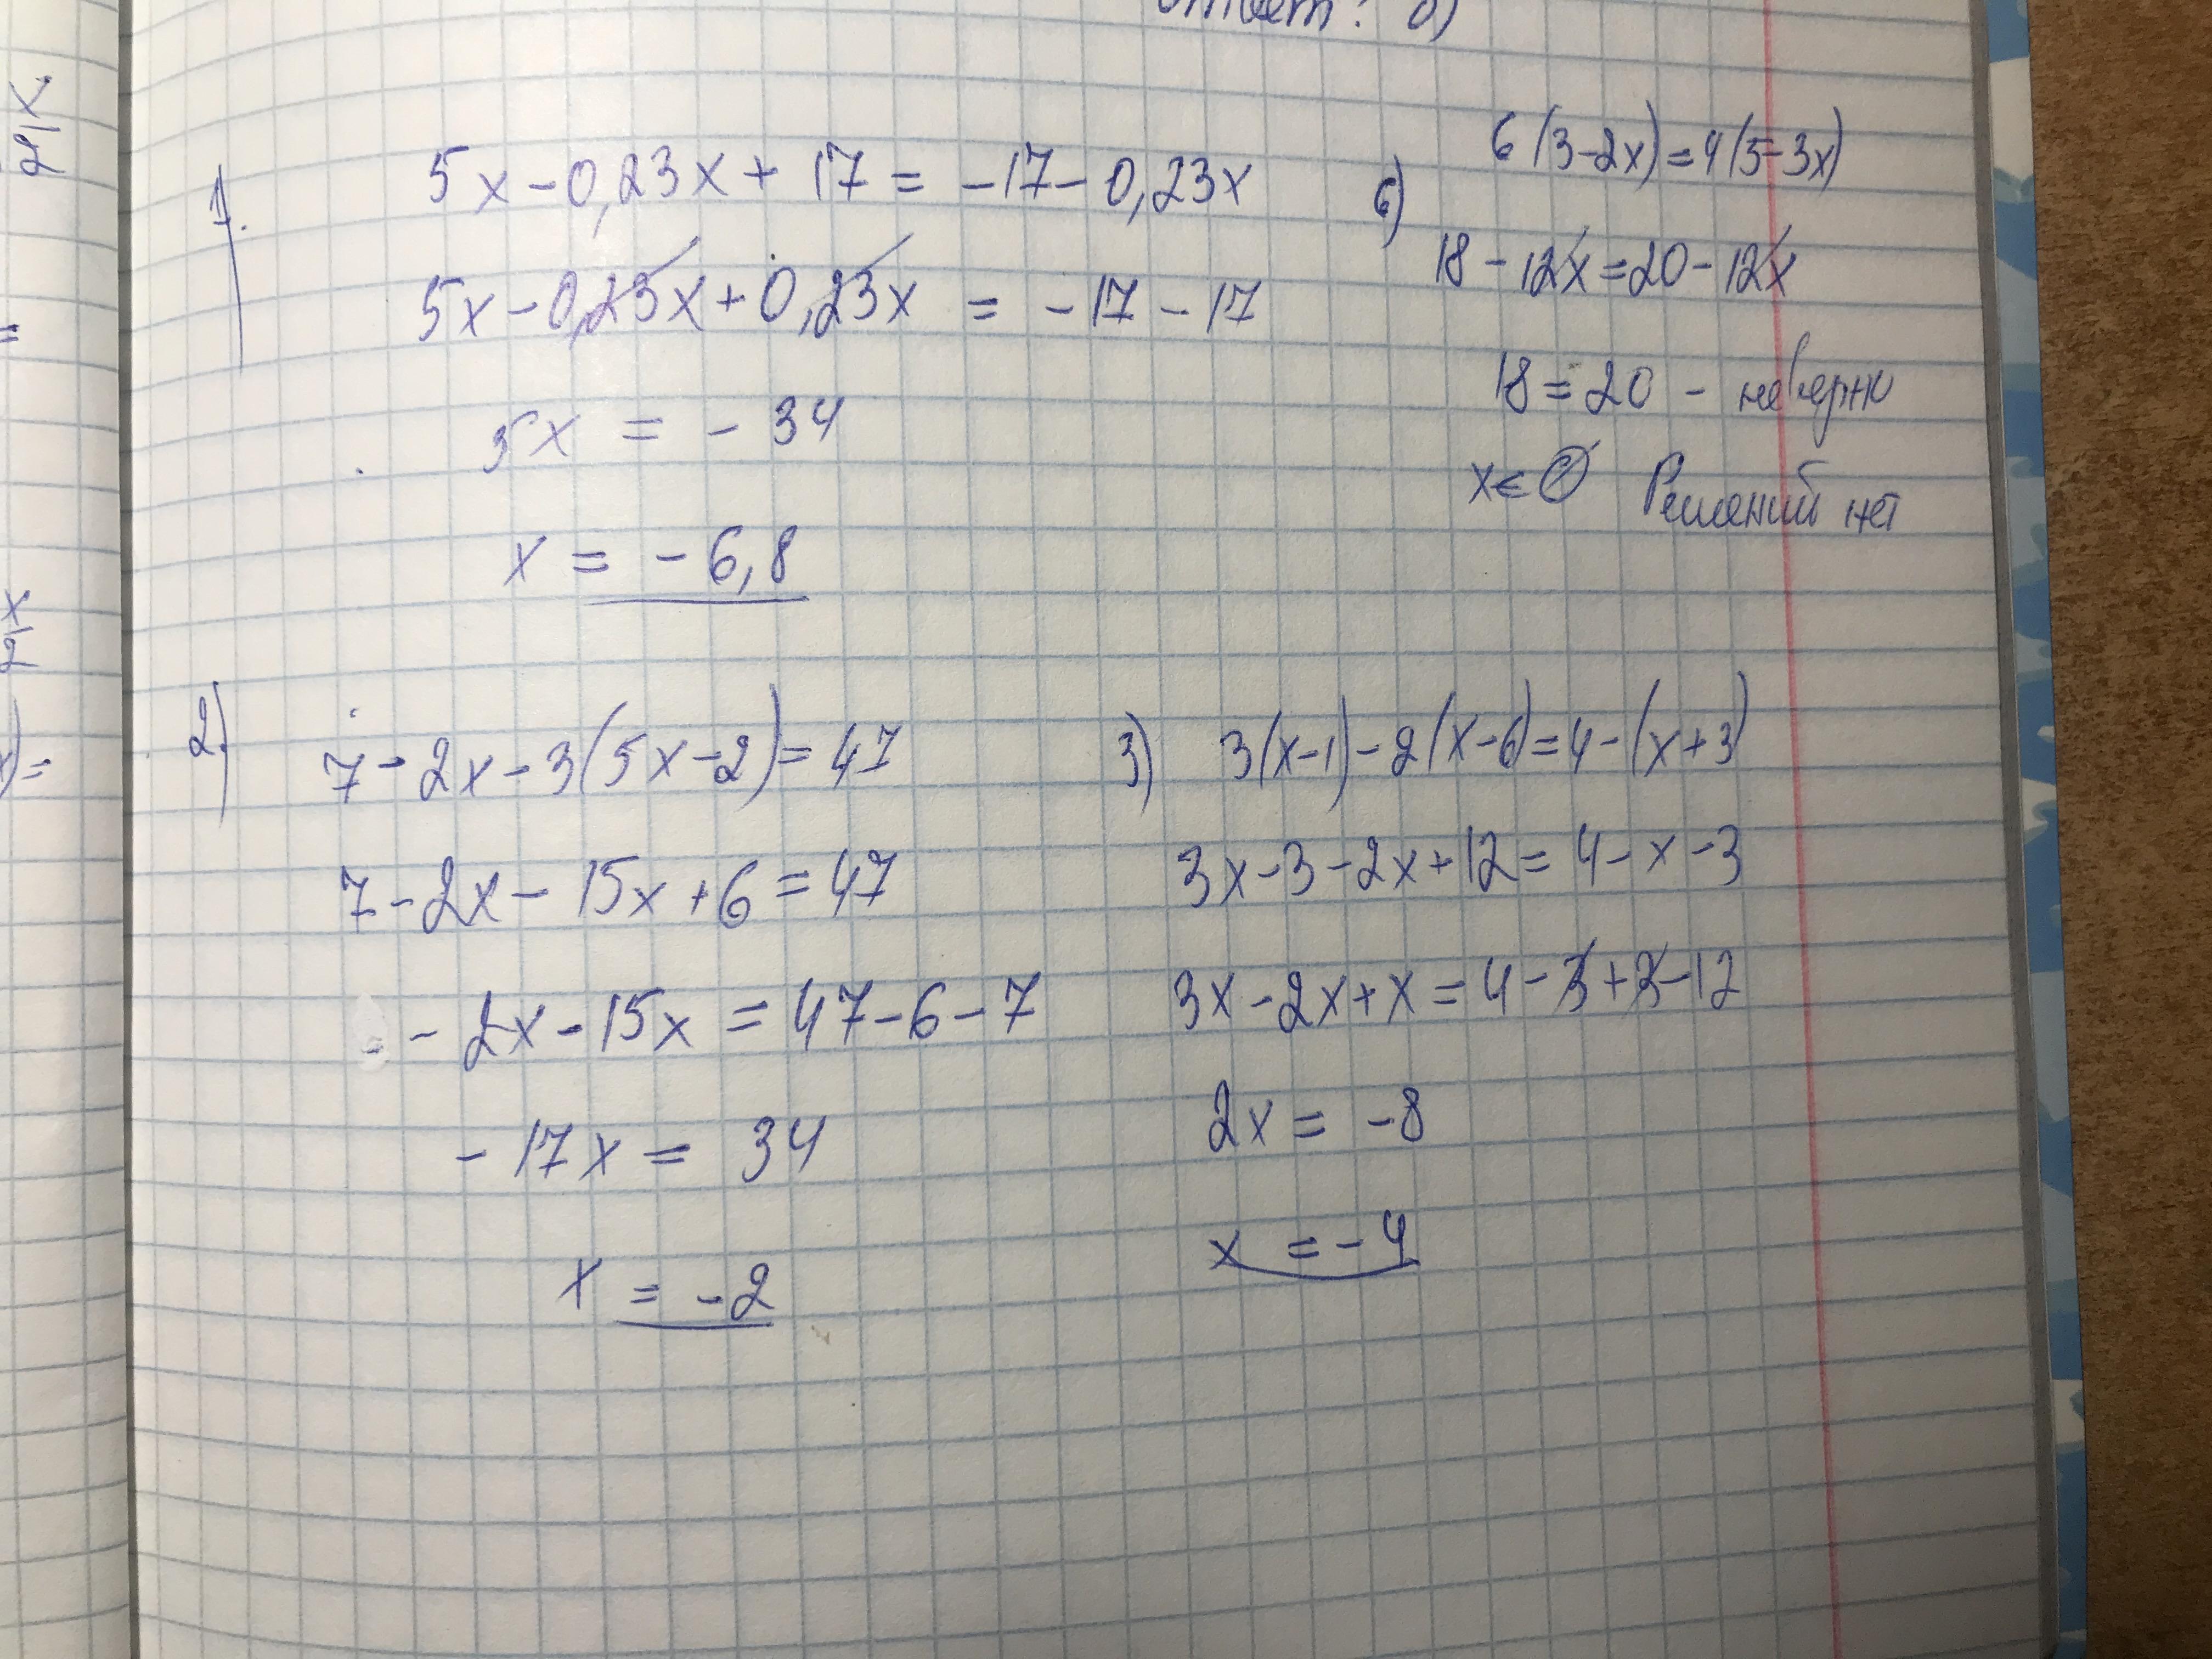 Ответ: б)
1.
5x - 0,23x + 17 = -17 - 0,23x
5x - 0,23x + 0,23x = -17 - 17
5x = - 34
x = - 6,8
6)
6(3-2x)=4(5-3x)
18 - 12x = 20 - 12x
18 = 20 - неверно
x ∈ ∅ Решений нет
2)
7 - 2x - 3(5x - 2) = 47
7 - 2x - 15x + 6 = 47
- 2x - 15x = 47 - 6 - 7
- 17x = 34
x = -2
3) 3(x-1) - 2(x-6) = 4 - (x+3)
3x - 3 - 2x + 12 = 4 - x - 3
3x - 2x + x = 4 - 3 + 3 - 12
2x = -8
x = -4
x
2
x) =